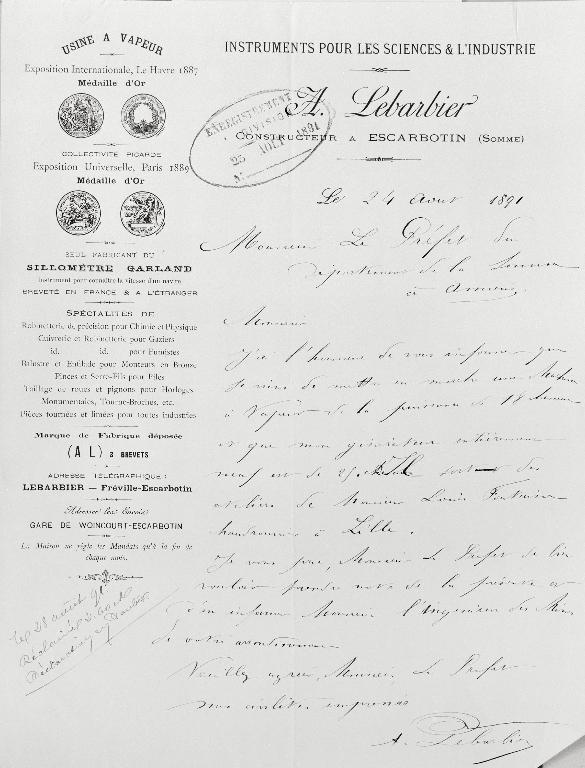 USINE A VAPEUR
Exposition Internationale, Le Havre 1887
Médaille d'Or
COLLECTIVITÉ PICARDE
Exposition Universelle, Paris 1889
Médaille d'Or
SEUL FABRICANT DU
SILLOMÈTRE GARLAND
Instrument pour connaître la vitesse d'un navire
BREVETÉ EN FRANCE & A L'ÉTRANGER
SPÉCIALITÉS DE
Robinetterie de précision pour Chimie et Physique
Cuivrerie et Robinetterie pour Gaziers
id. id. pour Fumistes
Balustre et Entibule pour Monteurs en Bronze
Pinces et Serre-Fils pour Piles
Taillage de roues et pignons pour Horloges
Monumentales, Tourne-Broches, etc.
Pièces tournées et limées pour toutes industries
Marque de Fabrique déposée
(A L) 3 BREVETS
ADRESSE TÉLÉGRAPHIQUE :
LEBARBIER — Fréville-Escarbotin
Adresser les Envois
GARE DE WOINCOURT-ESCARBOTIN
La Maison ne règle les Mandats qu'à la fin de
chaque mois.
Le 28 août 91
INSTRUMENTS POUR LES SCIENCES & L'INDUSTRIE
A. Lebarbier
CONSTRUCTEUR A ESCARBOTIN (SOMME)
ENREGISTREMENT
25 AOUT 1891
N°
Le 24 Aout 1891
Monsieur Le Préfet du
Département de la Somme
à Amiens
Monsieur
J'ai l'honneur de vous informer que
Je viens de mettre en marche une Machine
à Vapeur de la puissance de 18 chevaux
et que mon générateur entièrement
neuf est de 25 sort des
ateliers de Monsieur Louis Fontaine
chaudronnier à Lille.
Je vous prie, Monsieur le Préfet de bien
vouloir prendre note de la présente et
d'en informer Monsieur l'Ingénieur des Mines
de votre arrondissement
Veuillez agréer, Monsieur le Préfet
mes civilités empressées
A. Lebarbier